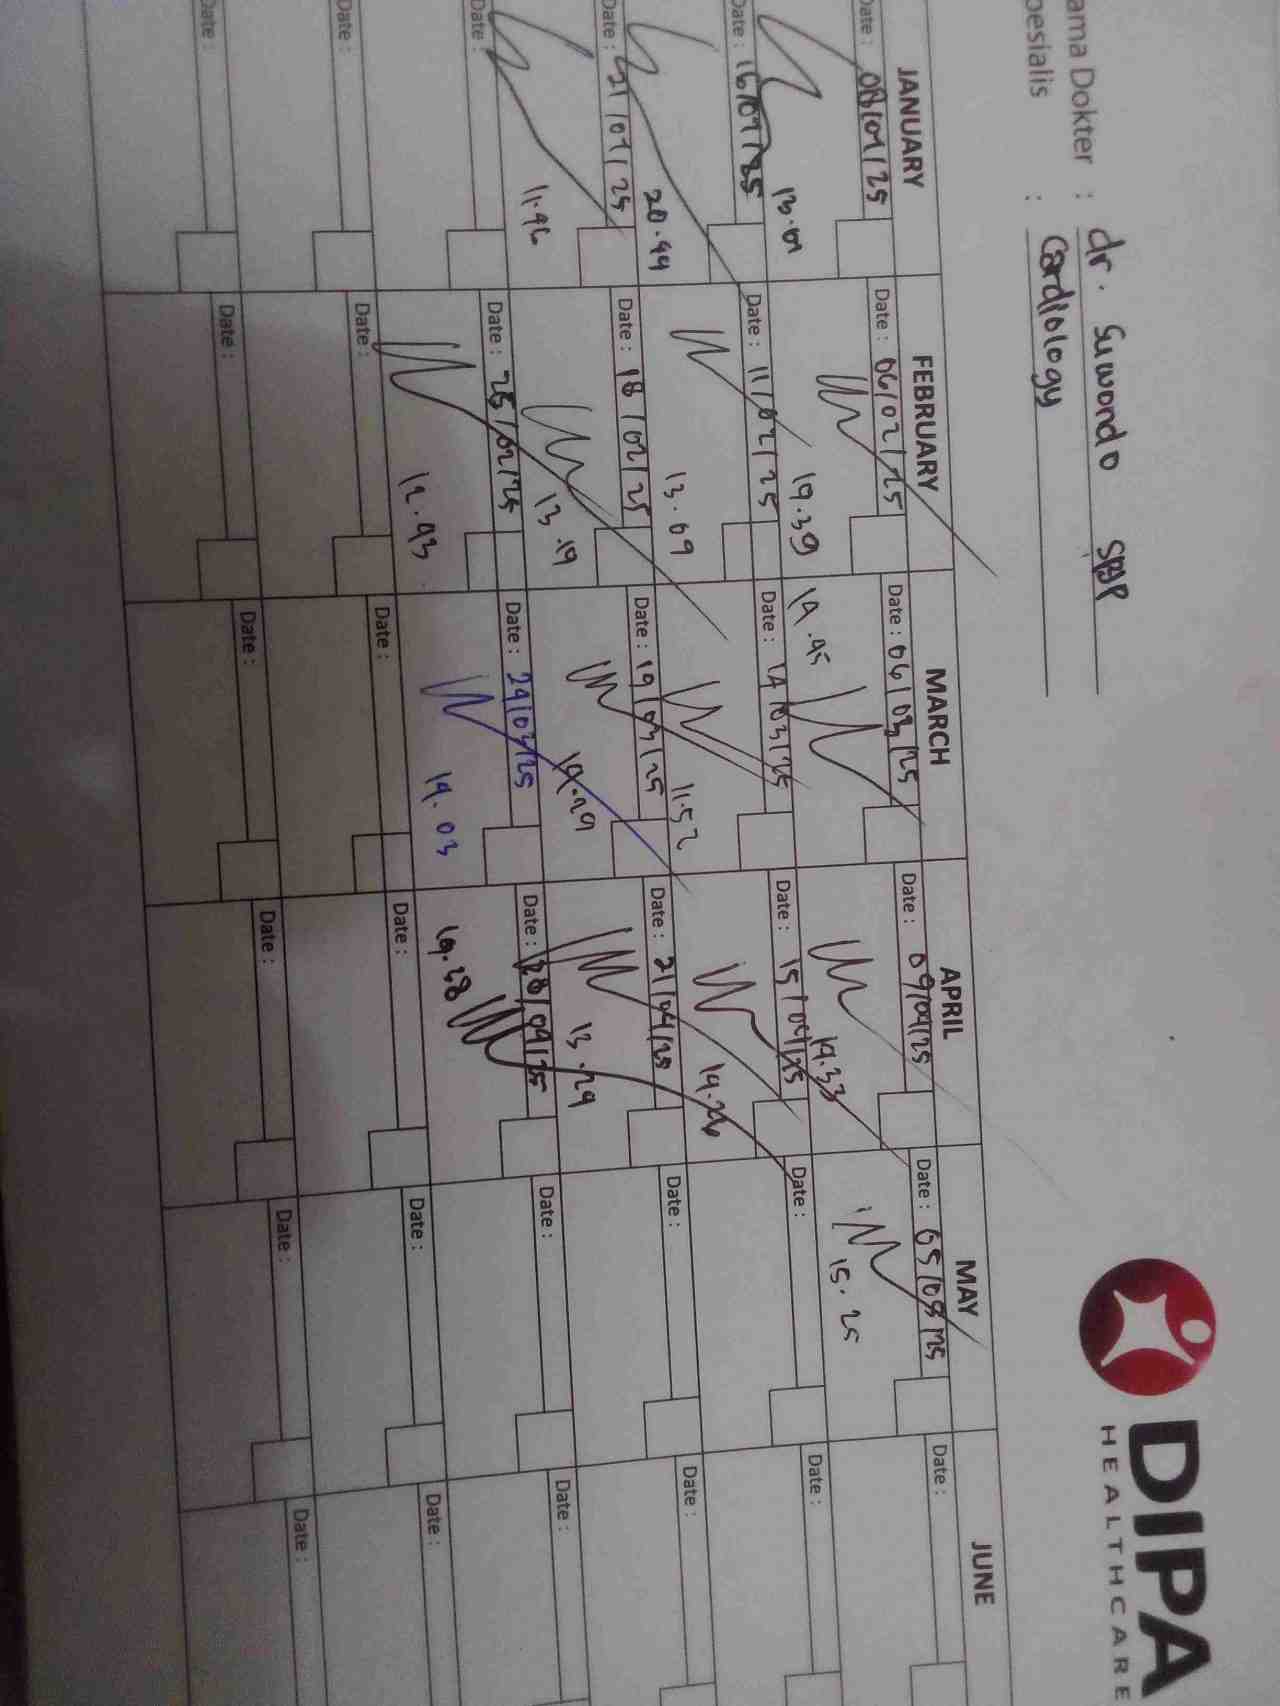 DIPA
HEALTHCARE
ama Dokter : dr. Suwondo SpJP
pesialis : Cardiology
JANUARY FEBRUARY MARCH APRIL MAY JUNE
Date : 08/01/25 Date : 06/02/25 Date : 06/03/25 Date : 09/04/25 Date : 05/05/25 Date :
13.01 19.39 14.45 14.33 15.25
Date : 16/01/25 Date : 11/02/25 Date : 14/03/25 Date : 15/04/25 Date : Date :
20.44 13.09 11.52 14.26
Date : 21/01/25 Date : 18/02/25 Date : 19/03/25 Date : 21/04/25 Date : Date :
11.46 13.19 14.29 13.29
Date : Date : 25/02/25 Date : 24/03/25 Date : 28/04/25 Date : Date :
12.43 14.03
Date : Date : Date : Date : Date : Date :
Date : Date : Date : Date : Date : Date :